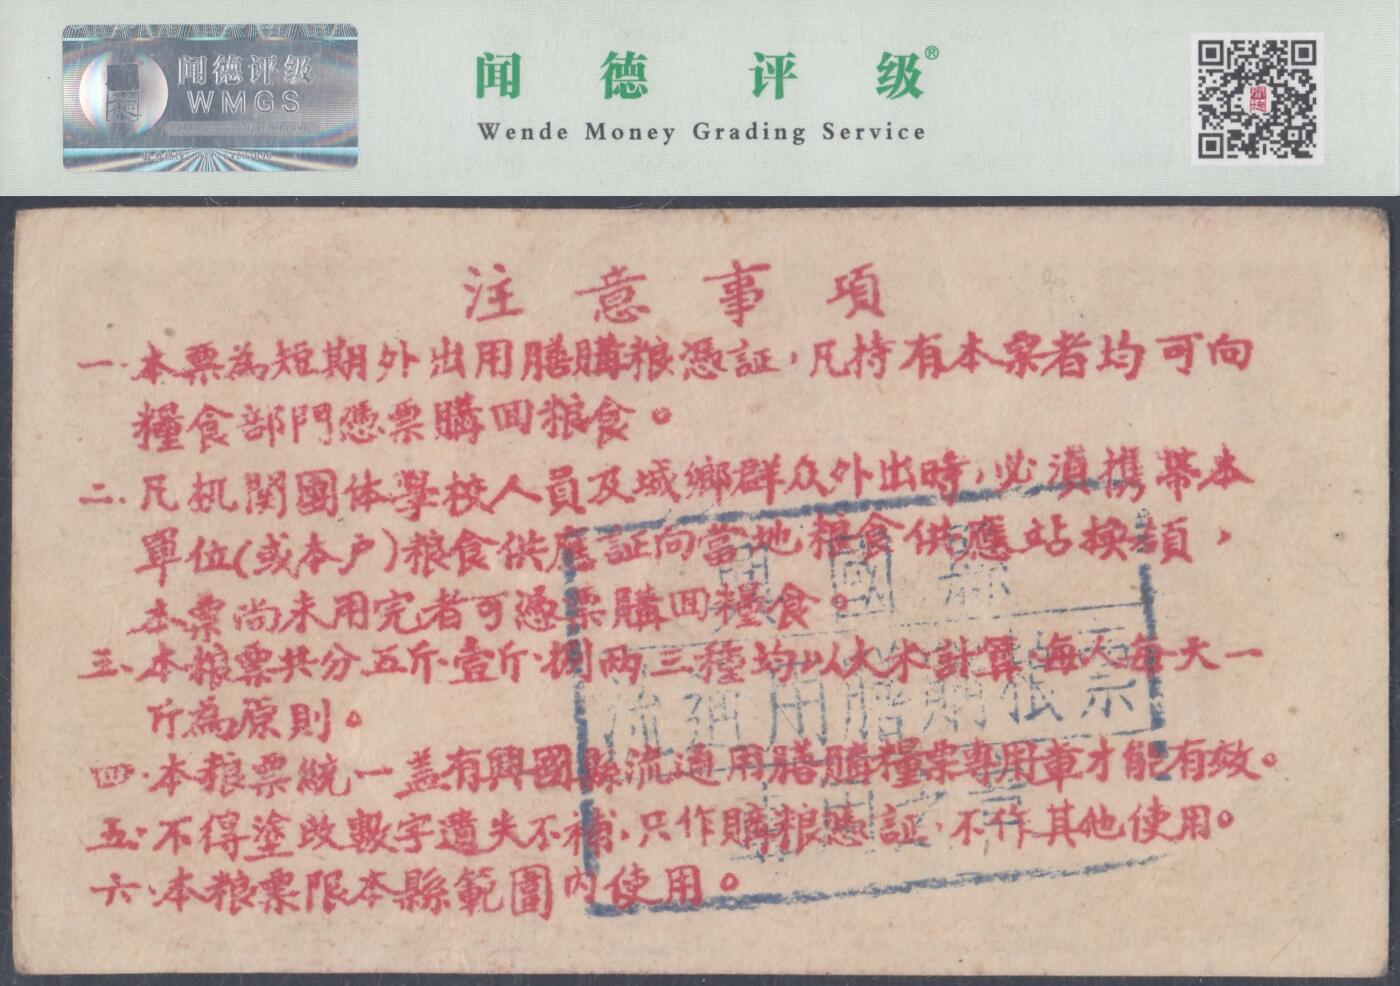 闻德评级
WMGS
闻德评级®
Wende Money Grading Service
注意事項
一.本票為短期外出用膳購粮憑証,凡持有本票者均可向
糧食部門憑票購回粮食。
二.凡机関團体學校人員及城鄉群众外出時,必須携帶本
單位(或本户)粮食供應証向當地粮食供應站換領,
本票尚未用完者可憑票購回糧食。
三.本粮票共分五斤.壹斤.捌両三種均以大米計算每人每天一
斤為原則。
四.本粮票統一盖有興國縣流通用膳購糧票專用章才能有效。
五.不得塗改數字遺失不補.只作購粮憑証.不作其他使用。
六.本粮票限本縣範圍內使用。
興國縣
流通用膳購粮票
專用之章